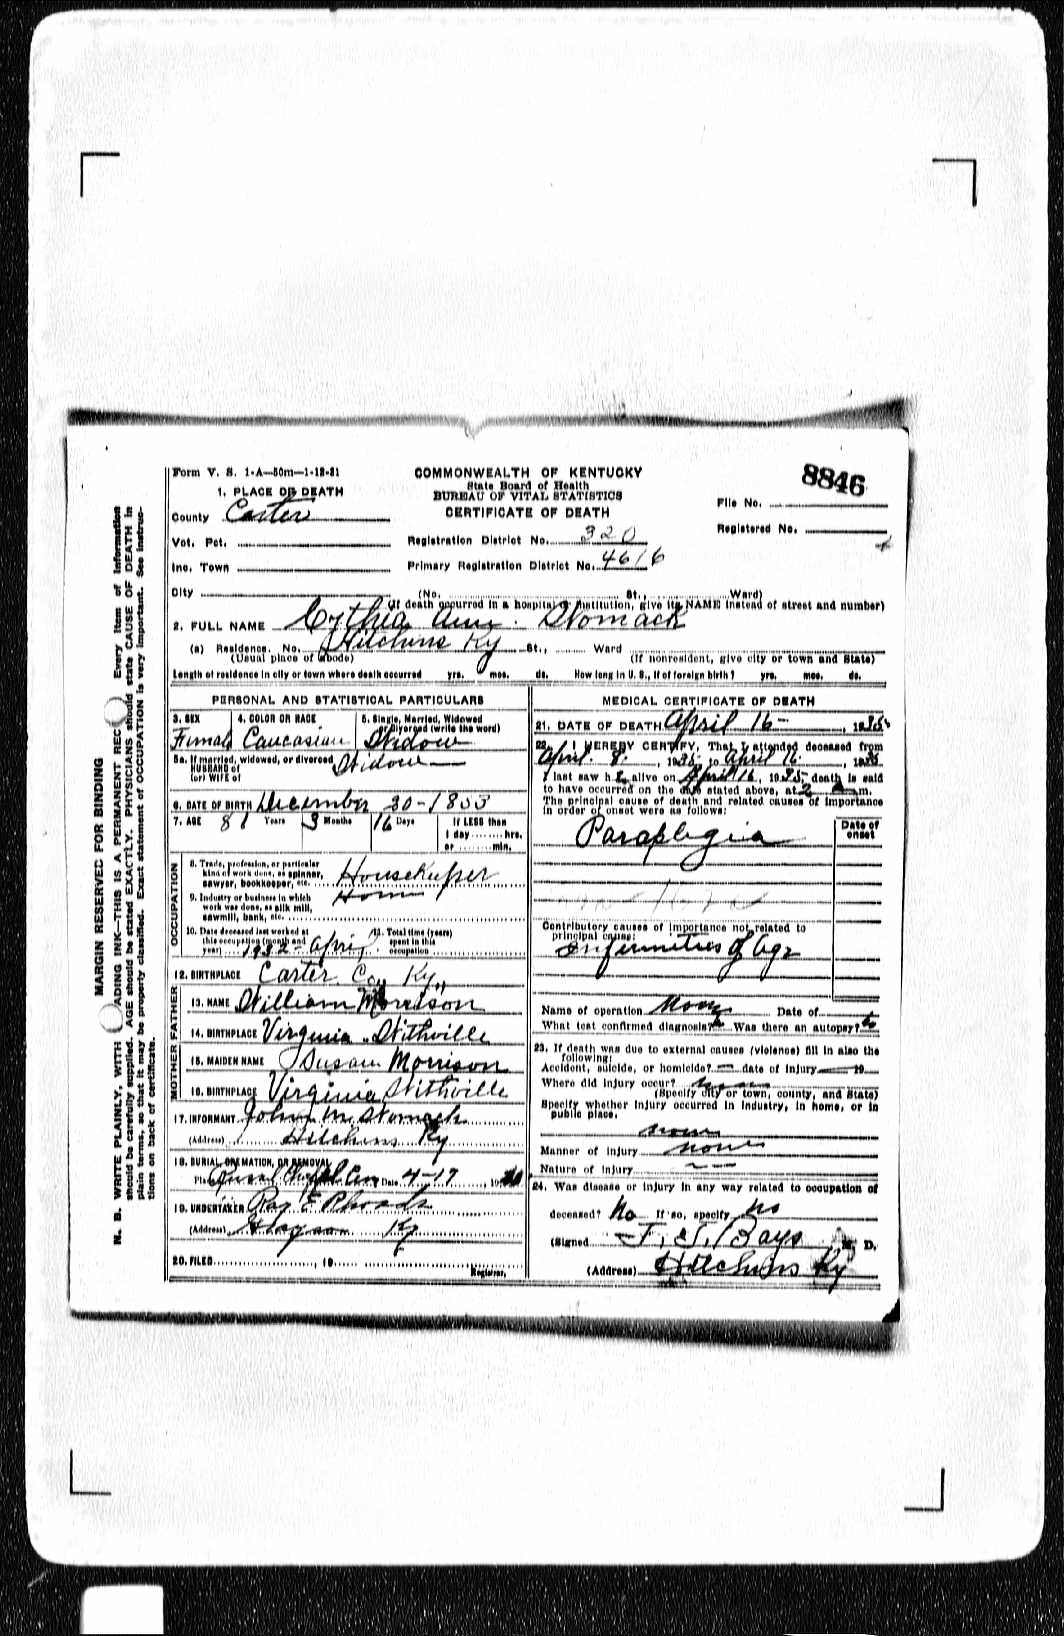 Form V. S. 1-A—50m—1-12-31
COMMONWEALTH OF KENTUCKY
State Board of Health
BUREAU OF VITAL STATISTICS
CERTIFICATE OF DEATH
8846
File No.
Registered No.
1. PLACE OF DEATH
County Carter
Vot. Pct.
Inc. Town
Registration District No. 320
Primary Registration District No. 4616
City (No. St., Ward)
(If death occurred in a hospital or institution, give its NAME instead of street and number)
2. FULL NAME Cythia Ann Stomack
(a) Residence. No. Hitchins Ky St., Ward
(Usual place of abode) (If nonresident, give city or town and State)
Length of residence in city or town where death occurred yrs. mos. ds. How long in U. S., if of foreign birth? yrs. mos. ds.
PERSONAL AND STATISTICAL PARTICULARS
3. SEX Female
4. COLOR OR RACE Caucasian
5. Single, Married, Widowed or Divorced (write the word) Widow
5a. If married, widowed, or divorced
HUSBAND of
(or) WIFE of Widow
6. DATE OF BIRTH December 30-1853
7. AGE 81 Years 3 Months 16 Days If LESS than
1 day hrs.
or min.
OCCUPATION
8. Trade, profession, or particular
kind of work done, as spinner,
sawyer, bookkeeper, etc. Housekeeper
9. Industry or business in which
work was done, as silk mill,
sawmill, bank, etc. Home
10. Date deceased last worked at
this occupation (month and
year) 1932- April
11. Total time (years)
spent in this
occupation
12. BIRTHPLACE Carter Co., Ky.,
FATHER
13. NAME William Morrison
14. BIRTHPLACE Virginia Withville
MOTHER
15. MAIDEN NAME Susan Morrison
16. BIRTHPLACE Virginia Withville
17. INFORMANT John M Stomach
(Address) Hitchins Ky
18. BURIAL, CREMATION, OR REMOVAL
Place Chapel Cem Date 4-17, 19
19. UNDERTAKER Ray E Rhoads
(Address) Grayson Ky
20. FILED , 19
Registrar.
MEDICAL CERTIFICATE OF DEATH
21. DATE OF DEATH April 16- , 1935
22. I HEREBY CERTIFY, That I attended deceased from
April 8, 1935, to April 16, 1935
I last saw h alive on April 16, 1935, death is said
to have occurred on the date stated above, at 2 A m.
The principal cause of death and related causes of importance
in order of onset were as follows:
Date of
onset
Paraplegia
Contributory causes of importance not related to
principal cause:
Infirmities of Age
Name of operation None Date of
What test confirmed diagnosis? Was there an autopsy?
23. If death was due to external causes (violence) fill in also the
following:
Accident, suicide, or homicide? — date of injury 19
Where did injury occur? none
(Specify city or town, county, and State)
Specify whether injury occurred in industry, in home, or in
public place.
none
Manner of injury none
Nature of injury — —
24. Was disease or injury in any way related to occupation of
deceased? No If so, specify No
(Signed J. J. Bays M. D.
(Address) Hitchins Ky
MARGIN RESERVED FOR BINDING
N. B. WRITE PLAINLY, WITH ADING INK—THIS IS A PERMANENT REC Every item of information
should be carefully supplied. AGE should be stated EXACTLY. PHYSICIANS should state CAUSE OF DEATH in
plain terms, so that it may be properly classified. Exact statement of OCCUPATION is very important. See instruc-
tions on back of certificate.